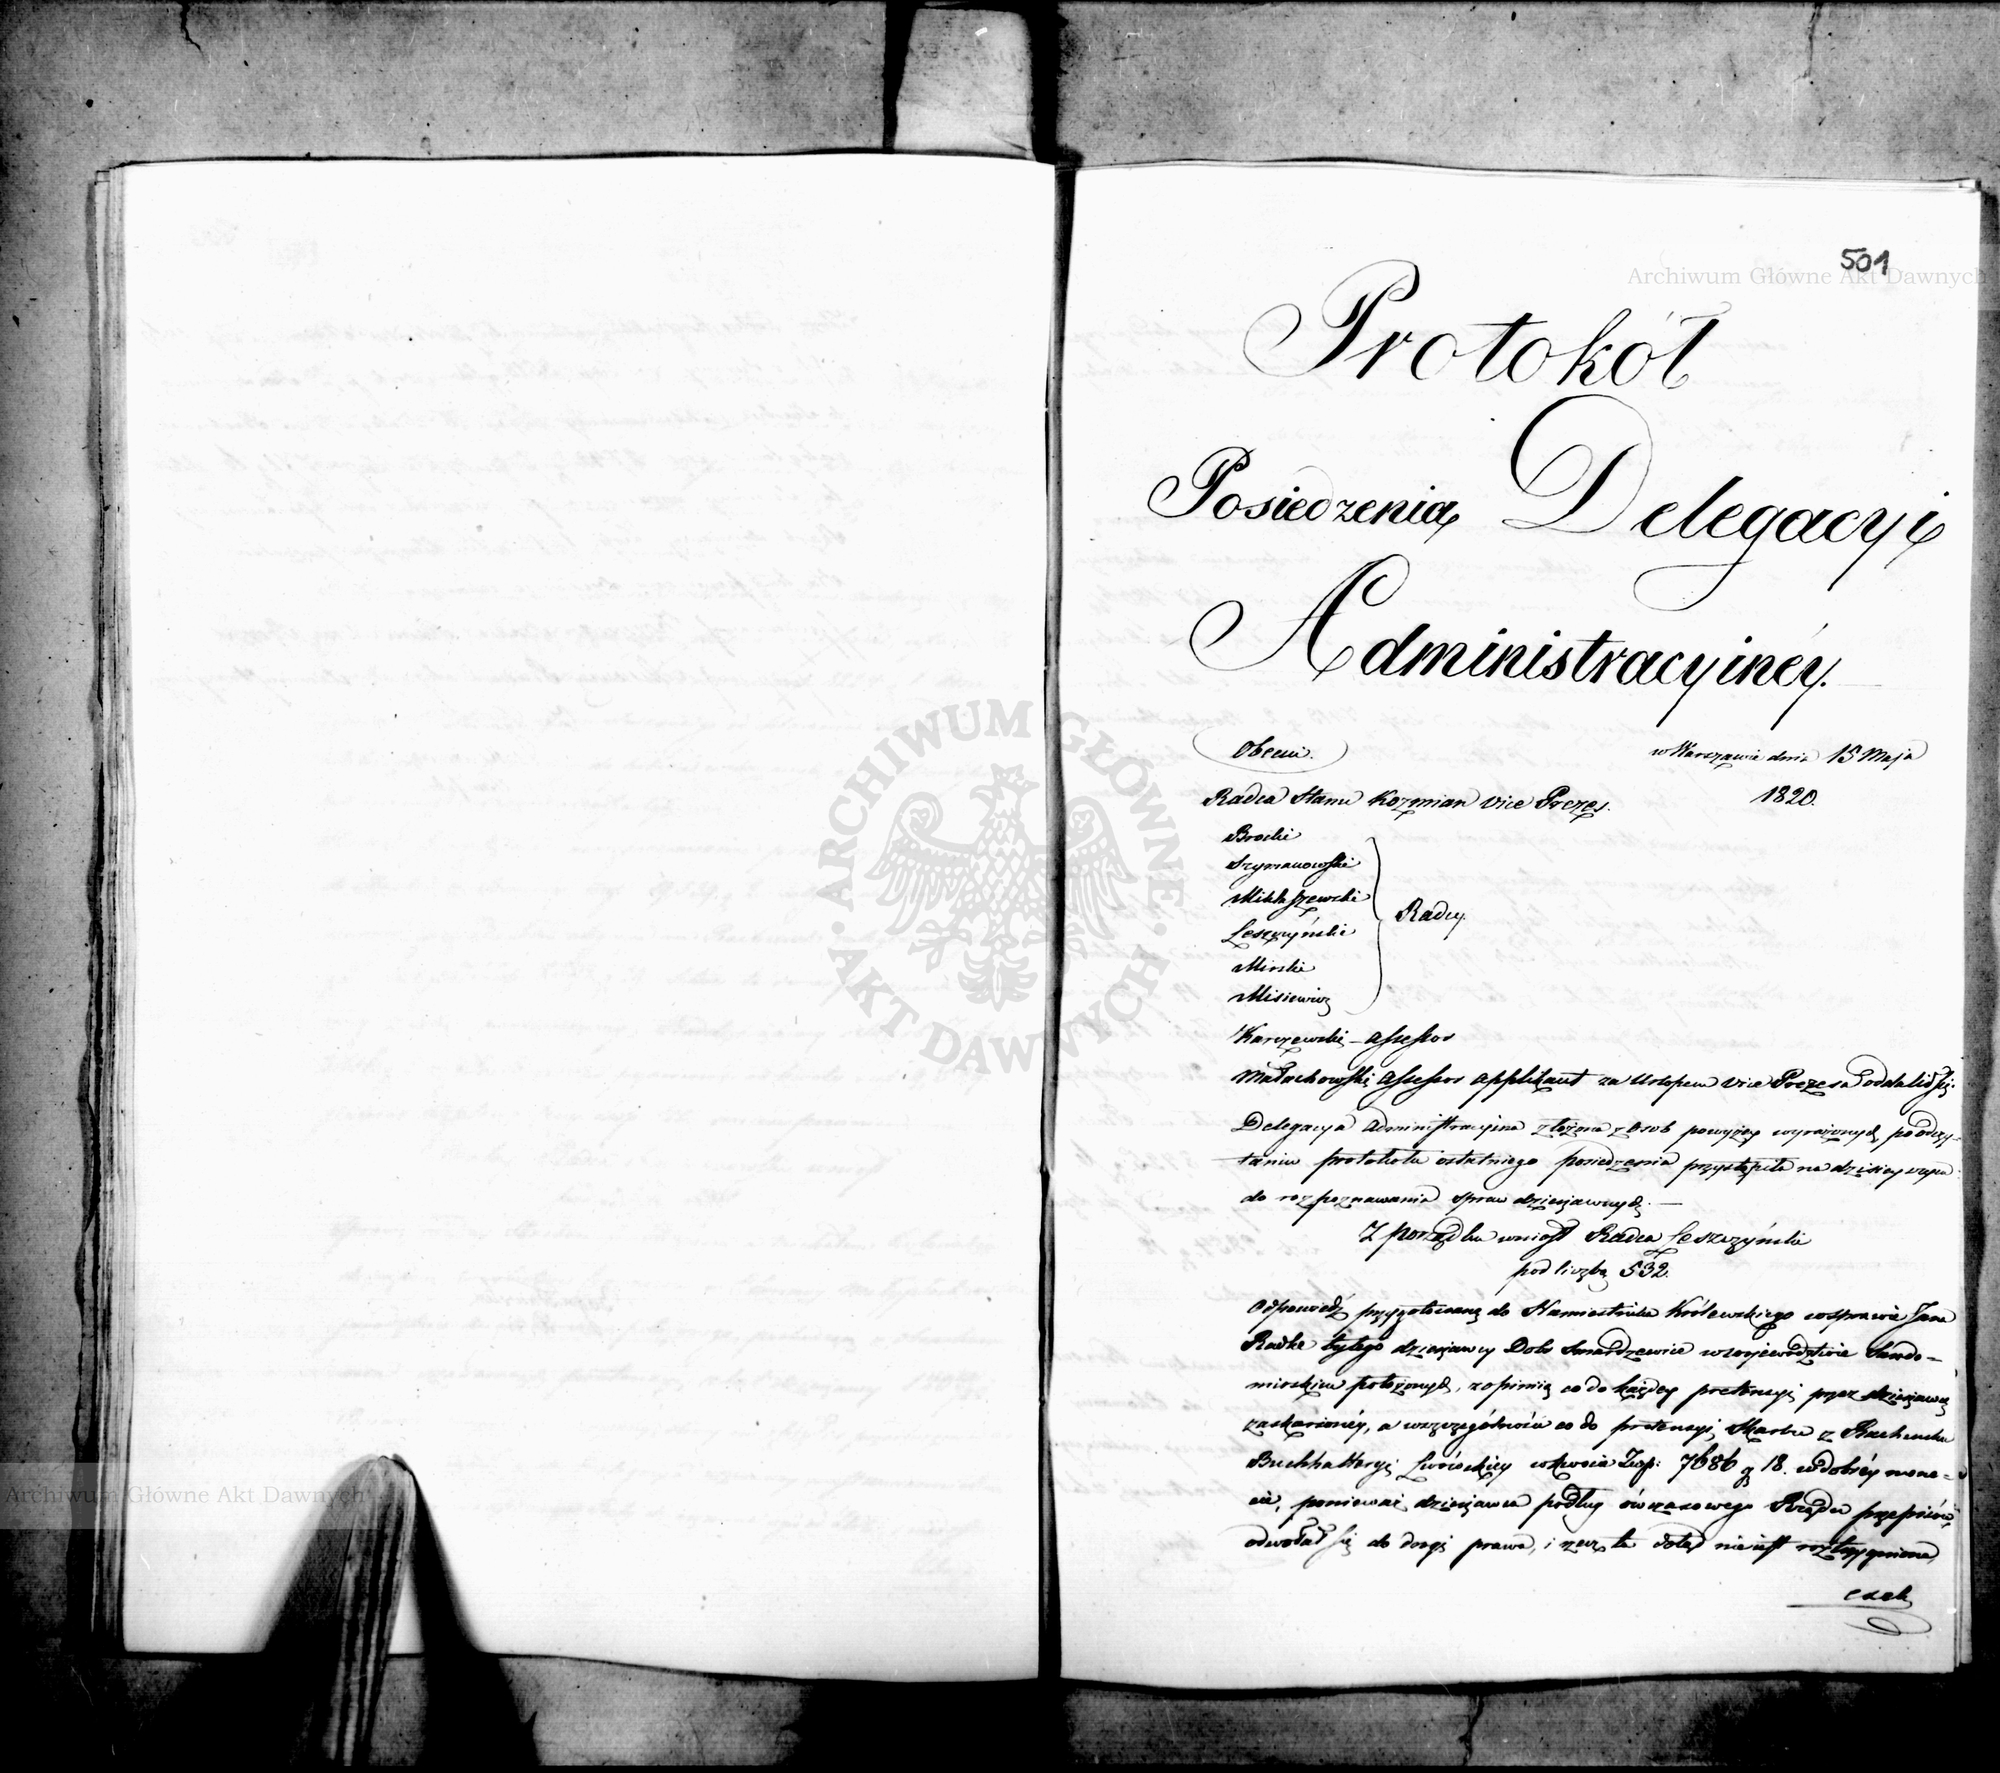 501
Protokół
Posiedzenia Delegacyi
Administracyinéy.
Obecni. w Warszawie dnia 15 Maja
Radca Stanu Kozmian Vice Prezes. 1820.
Brocki
Szymanowski
Mikłaszewski
Leszczyński
Mirski
Misiewicz
Radcy
Karczewski – Assessor
Małachowski Assessor Applikant za Urlopem Vice Prezesa oddalił się.
Delegacya Administracyina złożona z Osob powyżey wyrażonych, po odczy-
taniu protokołu ostatniego posiedzenia przystąpiła na dzisieyszym
do rozpoznawania spraw dzierżawnych. —
Z porządku wniosł Radca Leszczyński
pod liczbą 532.
Odpowiedź przygotowaną do Namiestnika Królewskiego w sprawie Jana
Radke byłego dzierżawcy Dobr Smardzewice w Wojewodztwie Sando-
mirskim położonych, z opinią co do każdey pretensyi przez dzierżawcę
zaskarżonéy, a w szczegolności co do pretensyi Skarbu z Rachunku
Buchhalteryi Lwowskiey w kwocie Złp: 7686 g 18. w dobréy mone-
cie, ponieważ dzierżawca podług ówczasowego Rządu przepisów
odwołał się do drogi prawa, i rzecz ta dotąd nie iest roztrzygnioną,
Archiwum Główne Akt Dawnych
ARCHIWUM GŁÓWNE AKT DAWNYCH
Archiwum Główne Akt Dawnych